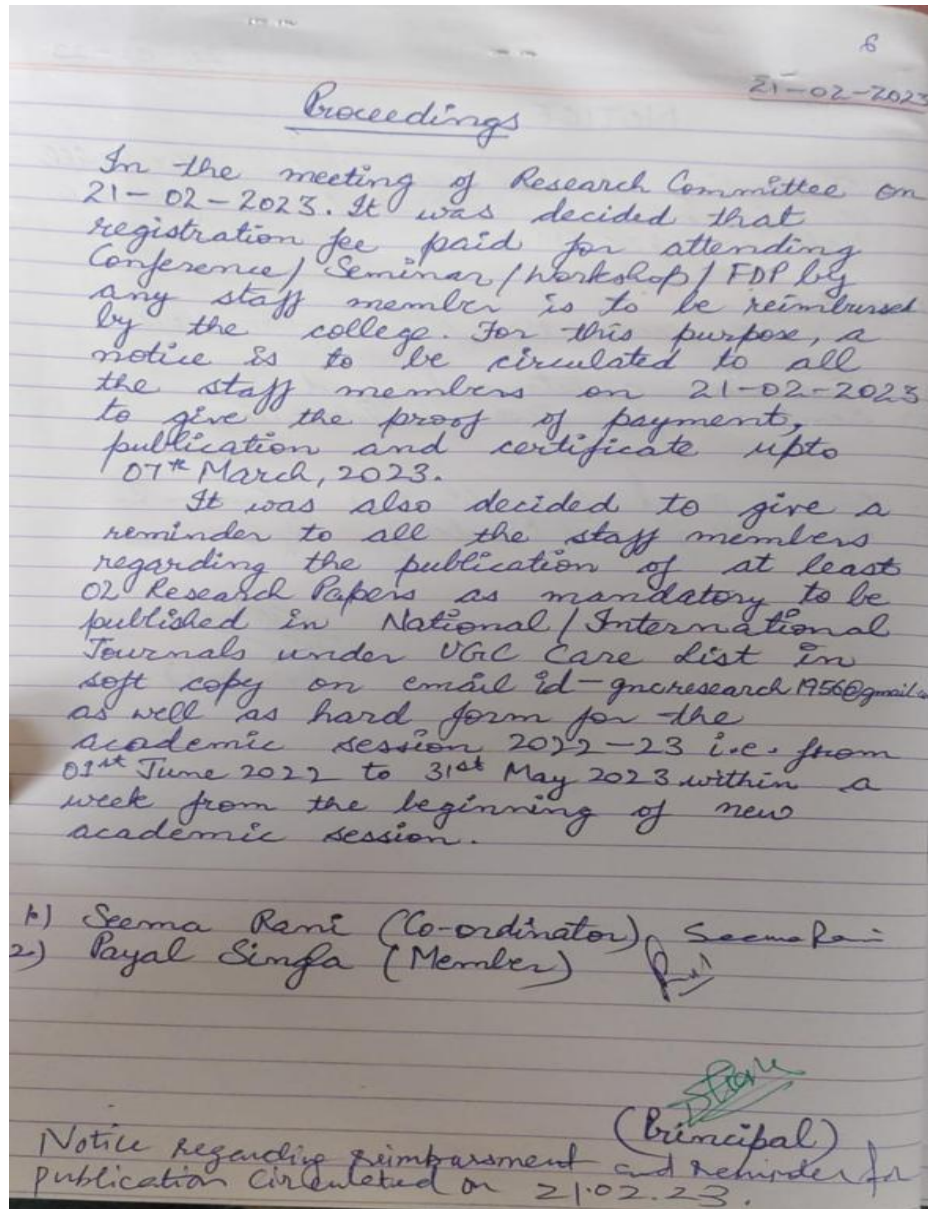 6
21-02-2023
Proceedings
In the meeting of Research Committee on
21-02-2023. It was decided that
registration fee paid for attending
Conference/Seminar/Workshop/FDP by
any staff member is to be reimbursed
by the college. For this purpose, a
notice is to be circulated to all
the staff members on 21-02-2023
to give the proof of payment,
publication and certificate upto
07th March, 2023.
It was also decided to give a
reminder to all the staff members
regarding the publication of at least
02 Research Papers as mandatory to be
published in National/International
Journals under UGC Care List in
soft copy on email id-gncresearch1956@gmail.
as well as hard form for the
academic session 2022-23 i.e. from
01st June 2022 to 31st May 2023 within a
week from the beginning of new
academic session.
1) Seema Rani (Co-ordinator) Seema Rani
2) Payal Singla (Member)
(Principal)
Notice regarding reimbarsment and reminder for
publication circuleted on 21.02.23.